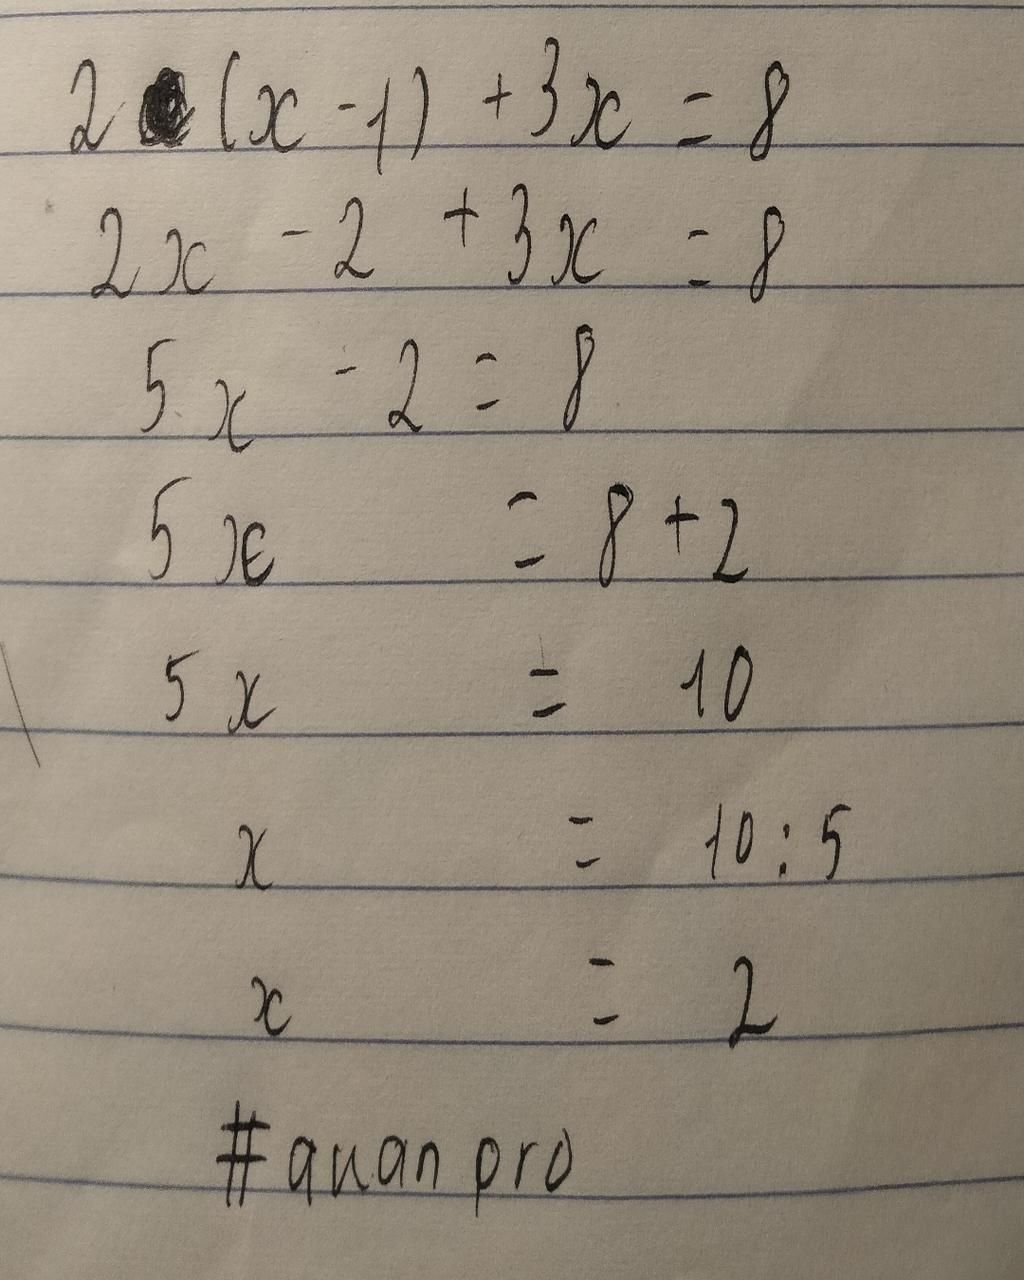 2 (x - 1) + 3x = 8
2x - 2 + 3x = 8
5x - 2 = 8
5x = 8 + 2
5x = 10
x = 10 : 5
x = 2
#quanpro